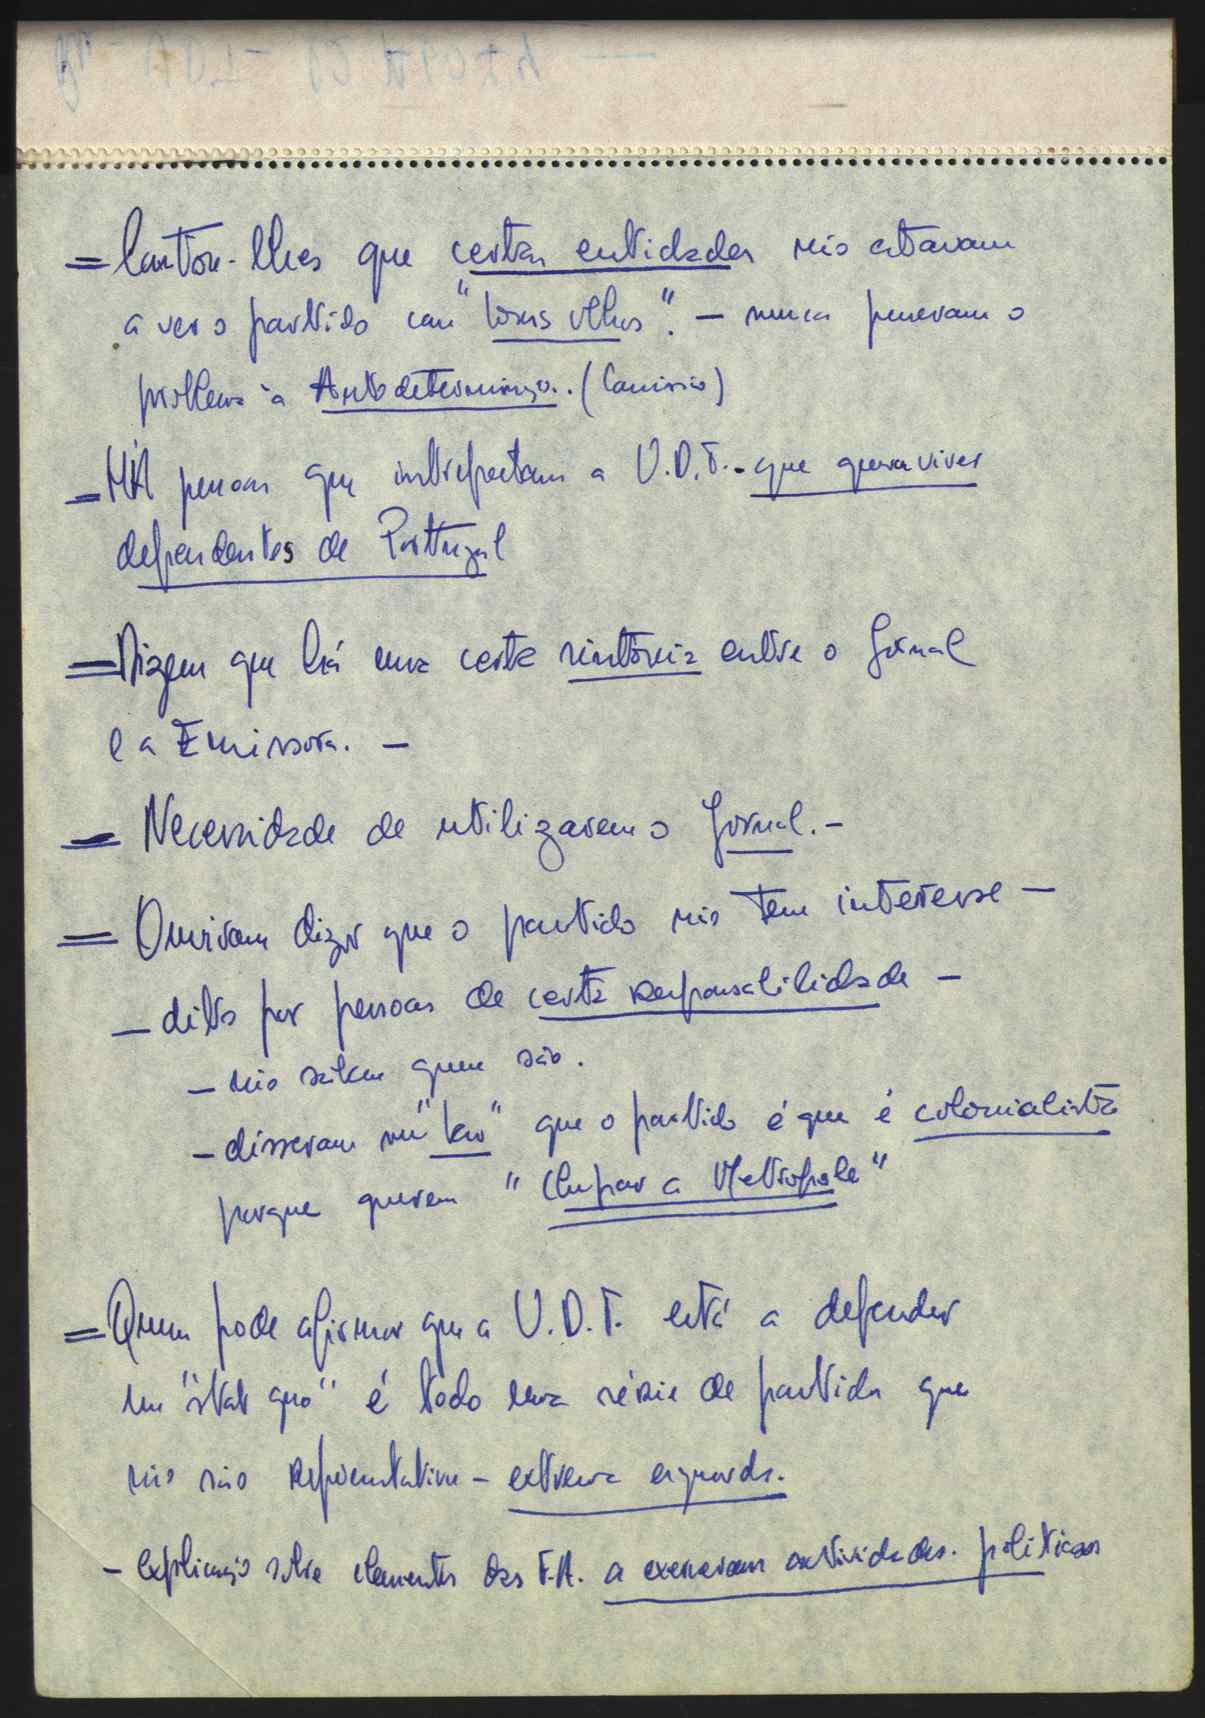 = Contou-lhes que certas entidades não estavam
a ver o partido com "bons olhos". - nunca puseram o
problema à Autodeterminação. (Comissão)
= HÁ pessoas que interpretam a U.D.T. - que querem viver
dependentes de Portugal
= Dizem que há uma certa sintonia entre o Jornal
e a Emissora. -
= Necessidade de utilizarem o Jornal. -
= Ouviram dizer que o partido não tem interesse -
- dito por pessoas de certa responsabilidade -
- não sabem quem são.
- disseram num "bar" que o partido é que é colonialista
porque querem "Chupar a Metropole"
= Quem pode afirmar que a U.D.T. está a defender
um "stat quo" é todo uma série de partidos que
não são representativos - extrema esquerda.
- explicação sobre elementos das F.A. a exercerem actividades políticas